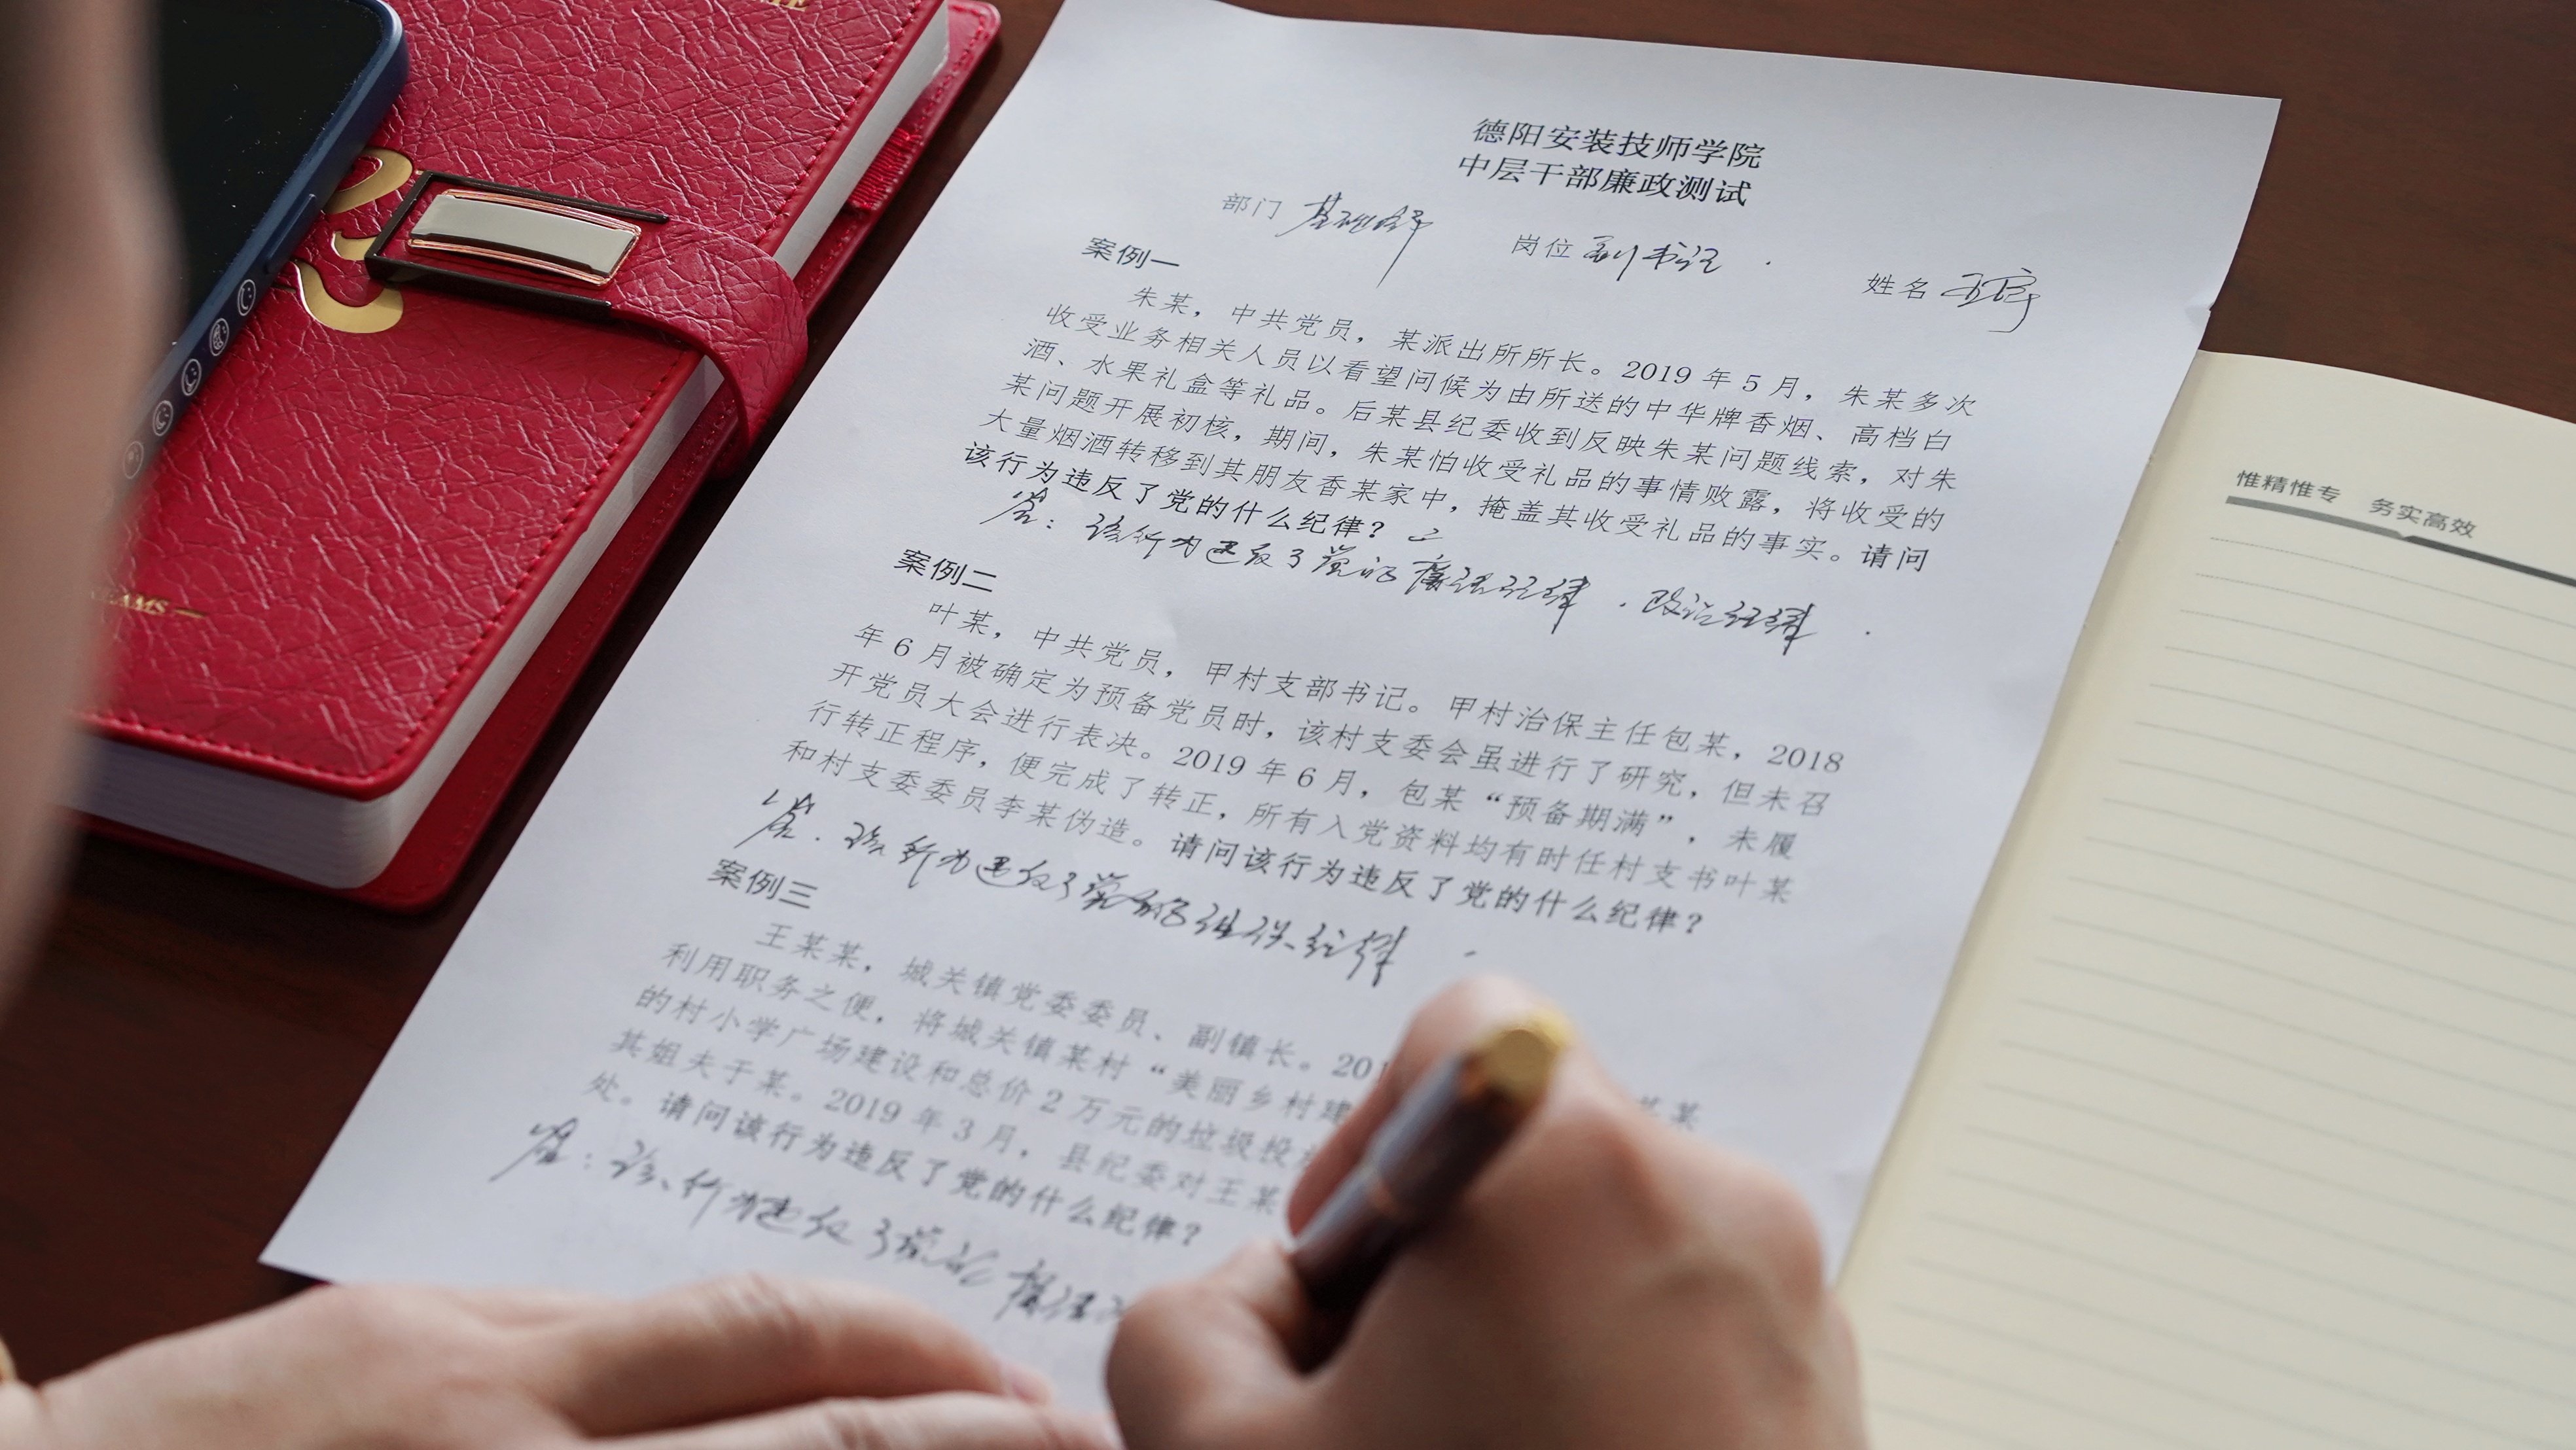 德阳安装技师学院
中层干部廉政测试
部门 基础部 岗位 副书记 姓名
案例一
朱某，中共党员，某派出所所长。2019 年 5 月，朱某多次
收受业务相关人员以看望问候为由所送的中华牌香烟、高档白
酒、水果礼盒等礼品。后某县纪委收到反映朱某问题线索，对朱
某问题开展初核，期间，朱某怕收受礼品的事情败露，将收受的
大量烟酒转移到其朋友香某家中，掩盖其收受礼品的事实。请问
该行为违反了党的什么纪律？
答：该行为违反了党的廉洁纪律．政治纪律
案例二
叶某，中共党员，甲村支部书记。甲村治保主任包某，2018
年 6 月被确定为预备党员时，该村支委会虽进行了研究，但未召
开党员大会进行表决。2019 年 6 月，包某“预备期满”，未履
行转正程序，便完成了转正，所有入党资料均有时任村支书叶某
和村支委委员李某伪造。请问该行为违反了党的什么纪律？
答．该行为违反了党的组织纪律
案例三
王某某，城关镇党委委员、副镇长。201
利用职务之便，将城关镇某村“美丽乡村建
的村小学广场建设和总价 2 万元的垃圾投
其姐夫于某。2019 年 3 月，县纪委对王某
处。请问该行为违反了党的什么纪律？
答：该行为违反了党的廉洁
惟精惟专 务实高效